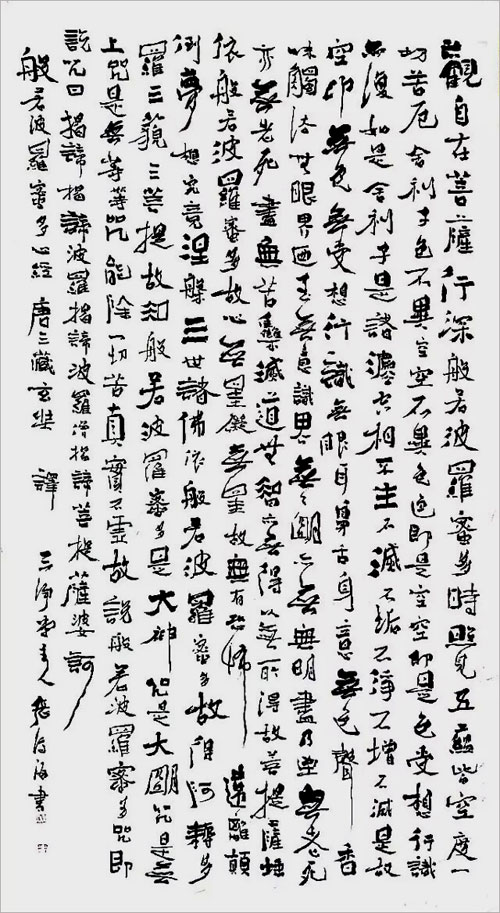 觀自在菩薩行深般若波羅蜜多時照見五蘊皆空度一
切苦厄舍利子色不異空空不異色色即是空空即是色受想行識
亦復如是舍利子是諸灋空相不生不滅不垢不淨不增不減是故
空中無色無受想行識無眼耳鼻舌身意無色聲香
味觸法無眼界乃至無意識界無無朙亦無無明盡乃至無老死
亦無老死盡無苦集滅道無智亦無得以無所得故菩提薩埵
依般若波羅蜜多故心無罣礙無罣故無有恐怖遠離顛
倒夢想究竟涅槃三世諸佛依般若波羅蜜多故得阿耨多
羅三藐三菩提故知般若波羅蜜多是大神咒是大朙咒是無
上咒是無等等咒能除一切苦真實不虛故說般若波羅蜜多咒即
說咒曰揭諦揭諦波羅揭諦波羅僧揭諦菩提薩婆訶
般若波羅蜜多心經 唐三藏玄奘 譯 三淨堂主人 書